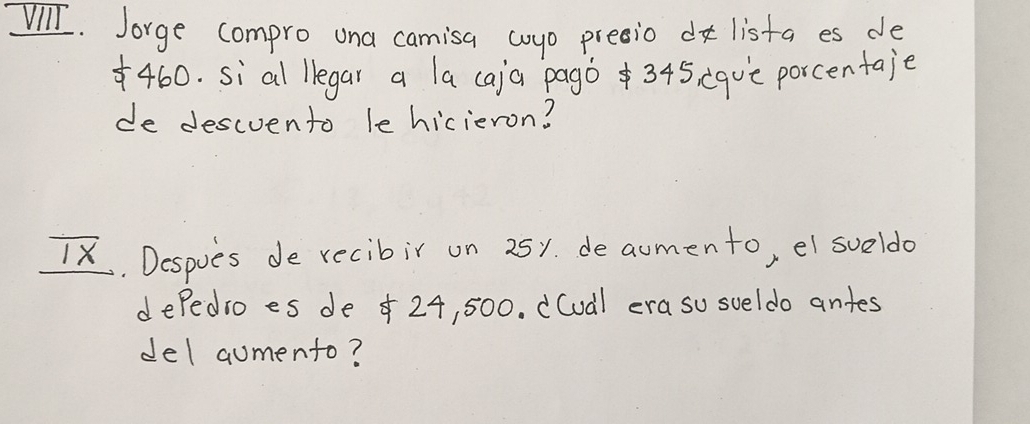 VIII. Jorge compro una camisa cuyo precio de lista es de
$460. si al llegar a la caja pagó $345, ¿qué porcentaje
de descuento le hicieron?
IX. Después de recibir un 25% de aumento, el sueldo
de Pedro es de $24,500. ¿Cuál era su sueldo antes
del aumento?